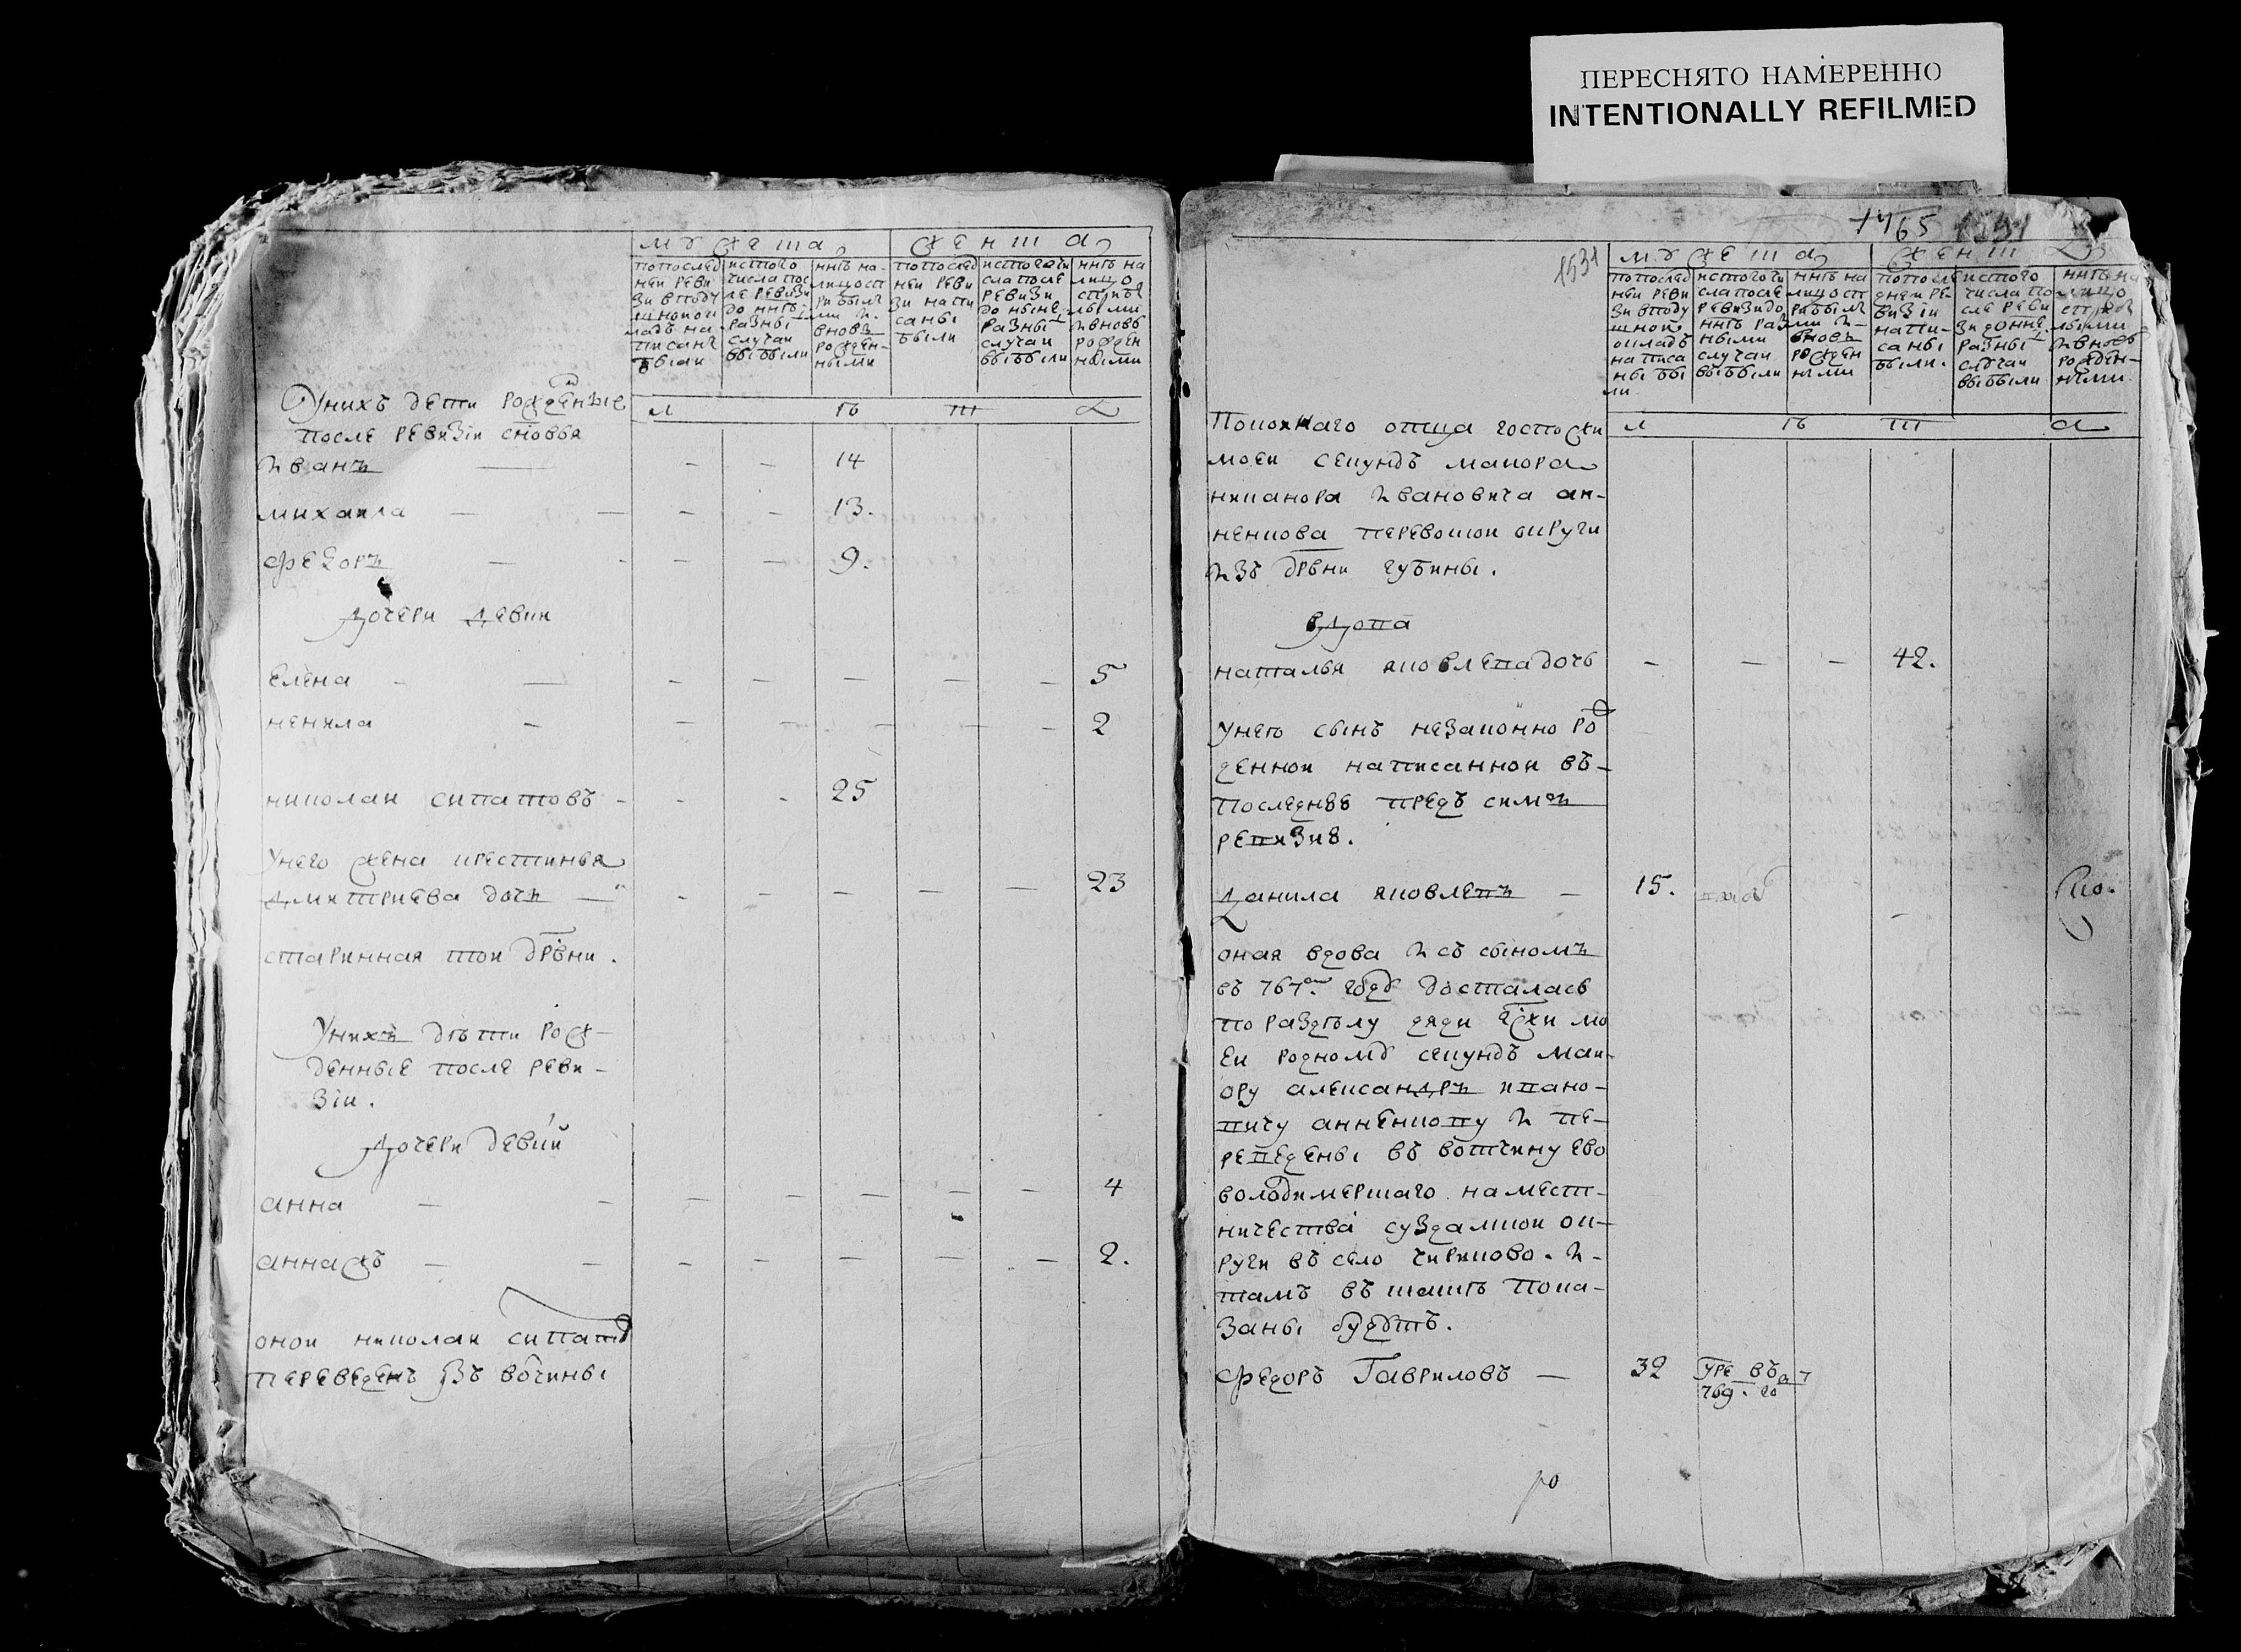 ПЕРЕСНЯТО НАМЕРЕННО
INTENTIONALLY REFILMED
мужеска
женска
по послед
ней реви
зи в поду
шной ок
ладъ на
писанъ
были
ис того
числа пос
ле ревизи
до ннѣ
разны
случаи
выбыли
ннѣ на
лицо ст
рибылы
ми и
вновъ
рожден
ными
по послед
ней реви
зи напи
саны
были
ис того чи
сла после
ревизи
до ныне
разны
случаи
выбыли
ннѣ на
лицо
с приб
лыми
и вновь
рожден
ными
У нихъ дети рожденые
после ревизiи сновья
иванъ 14
михаила 13.
федоръ 9.
дочери девки
елена 5
ненила 2
николаи сипатовъ 25
У него жена крестинья
дмитриева дочъ 23
старинная той дрѣвни.
У нихъ дѣти рож-
денные после реви-
зiи.
дочери девки
анна 4
аннажъ 2.
оной николаи сипат
переведенъ въ вочины
1765 1531
1531
мужеска
женска
по послед
ней реви
зи в поду
шной
окладъ
написа
ны бы
ли
ис того чи
сла после
ревизи до
ннѣ раз
ными
случаи
выбыли
ннѣ на
лицо ст
рабылы
ми и
вновъ
рожден
ными
по после
дней ре
визiи
напи-
саны
были.
ис того
числа по
сле реви
зи донне
разны
случаи
выбыли
ннѣ на
лицо
с приб
лыми
и вновь
рожден-
ными.
Покойнаго отца госпожи
моей секундъ маиора
никанора ивановича ан-
ненкова перевоской округи
изъ дрвни губины.
вдова
наталья яковлева дочь 42.
у него сынъ незаконно ро
жденной написанной въ
последнѣе предъ симъ
ревизие.
данила яковлевъ 15.
оная вдова и съ сыномъ
въ 767м году досталась
по разделу дяди гжи мо
ей родному секундъ маи
ору александръ ивано-
вичу анненкову и пе-
реведены въ вотчину ево
володимерскаго намест-
ничества суздалской ок-
руги въ село чириково. и
тамъ въ скаскѣ пока-
заны будутъ.
федоръ Гавриловъ 32 въ
769. го